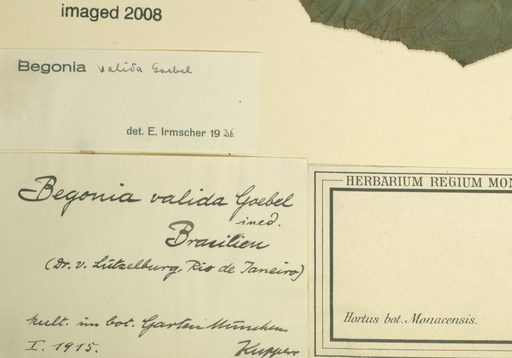 imaged 2008
Begonia valida Goebel
det. E. Irmscher 1936
Begonia valida Goebel
ined.
Brasilien
(Dr. v. Lützelburg, Rio de Janeiro)
kult. im bot. Garten München
I. 1915. Kupper
HERBARIUM REGIUM MON
Hortus bot. Monacensis.